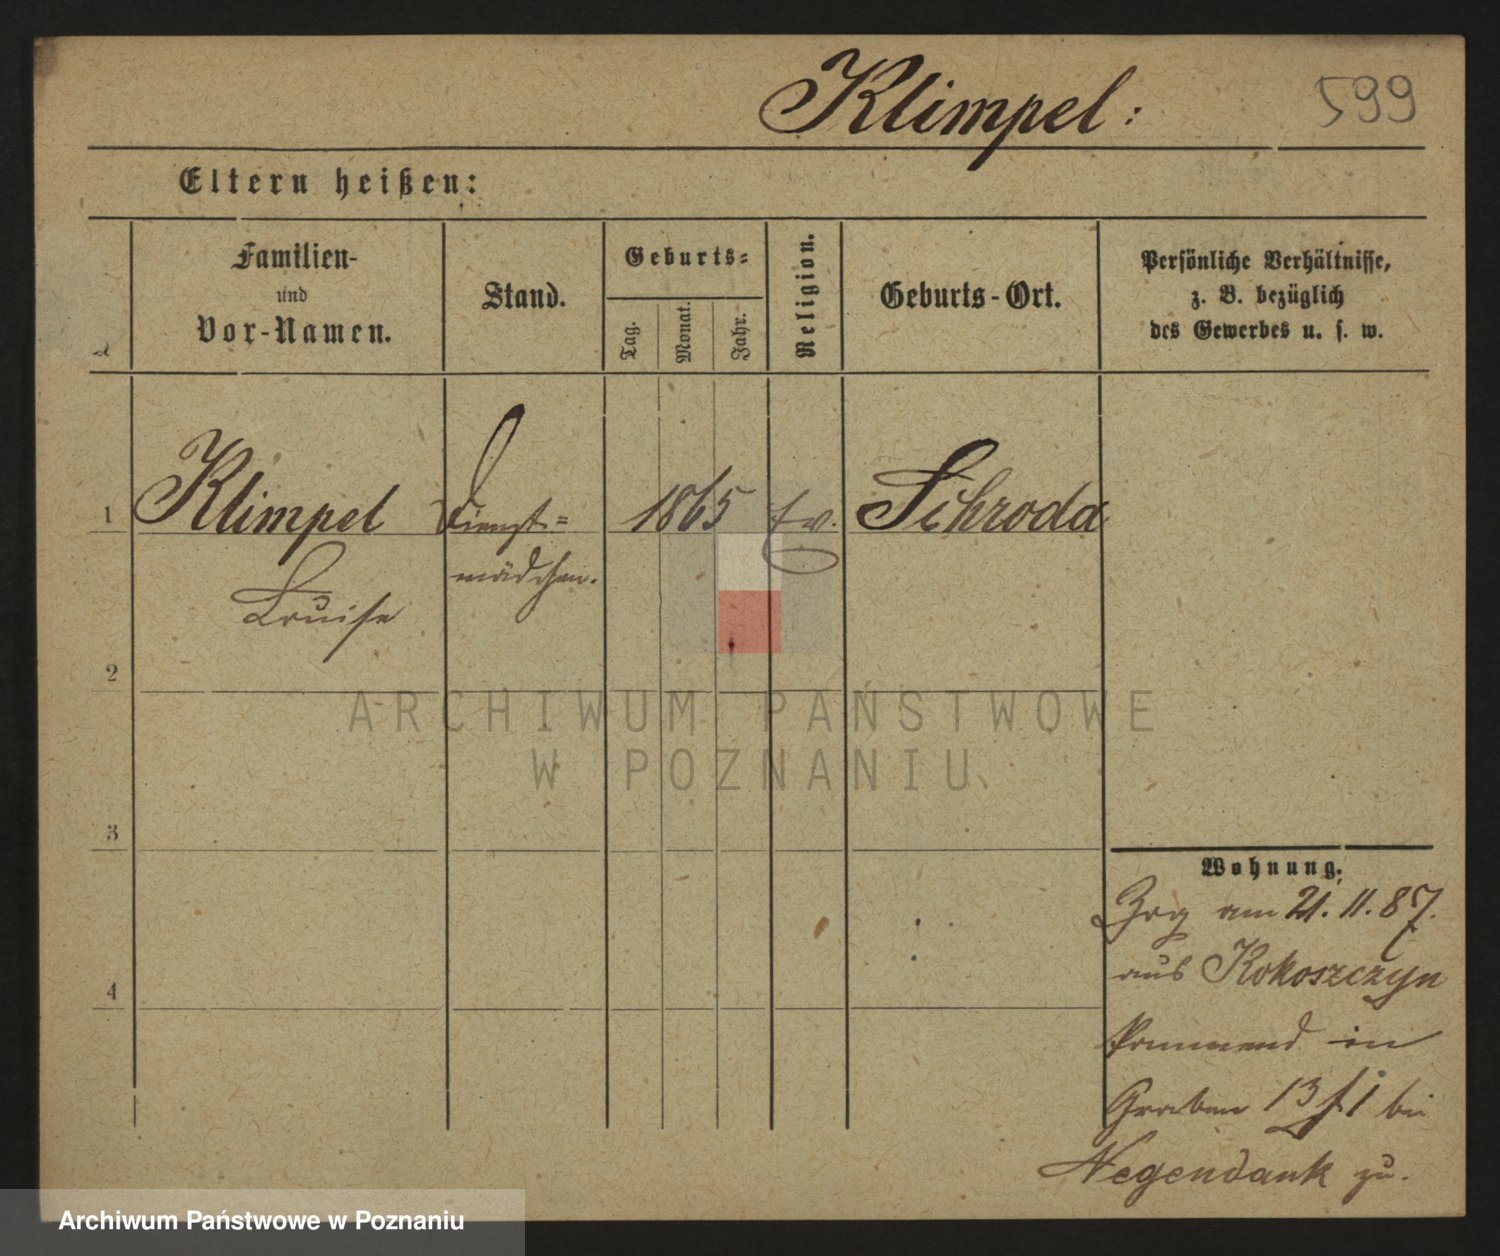 Klimpel:
599
Eltern heißen:
Familien-
und
Vor-Namen.
Stand.
Geburts-
Tag.
Monat.
Jahr.
Religion.
Geburts-Ort.
Persönliche Verhältnisse,
z. B. bezüglich
des Gewerbes u. s. w.
1
Klimpel
Dienst=
1865
ev.
Schroda
Louise
mädchen.
2
ARCHIWUM PAŃSTWOWE
W POZNANIU
3
4
Wohnung.
Zog am 21. 11. 87.
aus Kokoszczyn
kommend in
Graben 13 f 1 bei
Negendank zu.
Archiwum Państwowe w Poznaniu